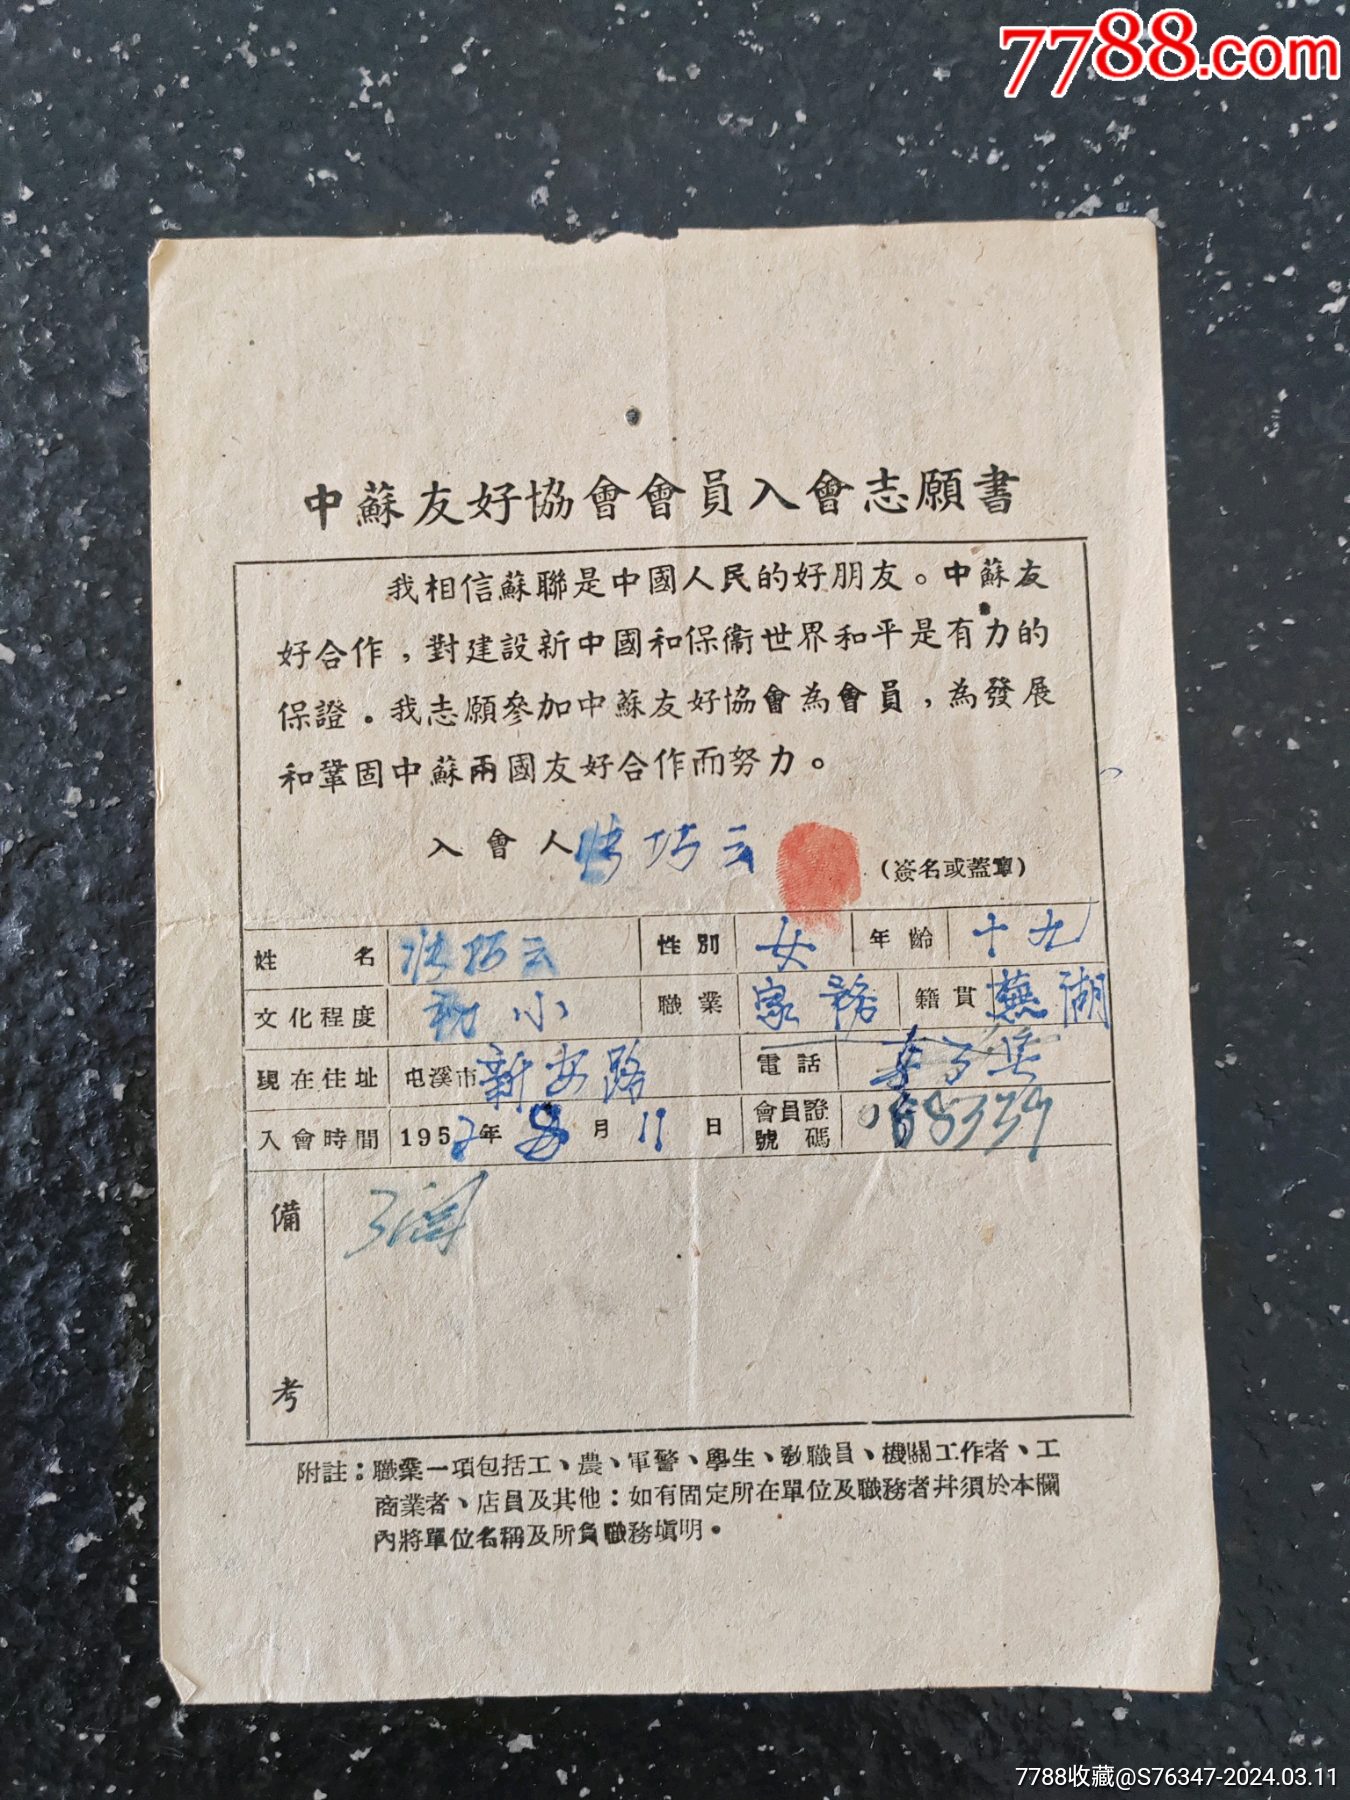 7788.com
中蘇友好協會會員入會志願書
我相信蘇聯是中國人民的好朋友。中蘇友
好合作，對建設新中國和保衞世界和平是有力的
保證。我志願參加中蘇友好協會為會員，為發展
和鞏固中蘇兩國友好合作而努力。
入會人 巧云 (簽名或蓋章)
姓名 巧云 性別 女 年齡 十九
文化程度 初小 職業 家務 籍貫 蕪湖
現在住址 屯溪市新安路 電話
入會時間 1952年8月11日 會員證號碼
備考
附註：職業一項包括工、農、軍警、學生、教職員、機關工作者、工
商業者、店員及其他：如有固定所在單位及職務者幷須於本欄
內將單位名稱及所負職務塡明。
7788收藏@S76347-2024.03.11